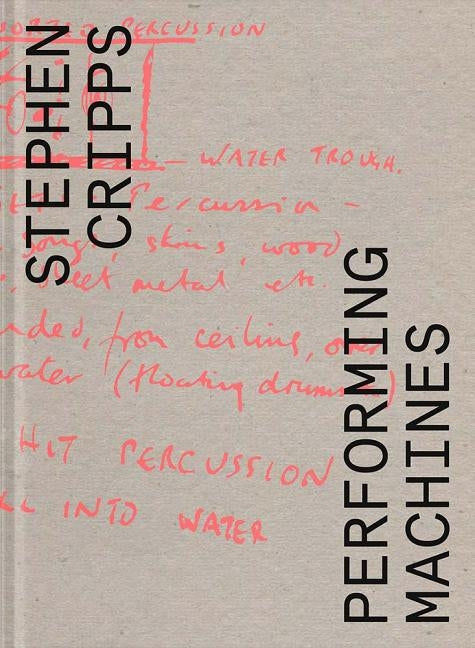 STEPHEN
CRIPPS
PERFORMING
MACHINES
PERCUSSION
WATER TROUGH.
Percussion -
skins, wood
sheet metal etc.
from ceiling, over
water (floating drums
HIT PERCUSSION
INTO WATER